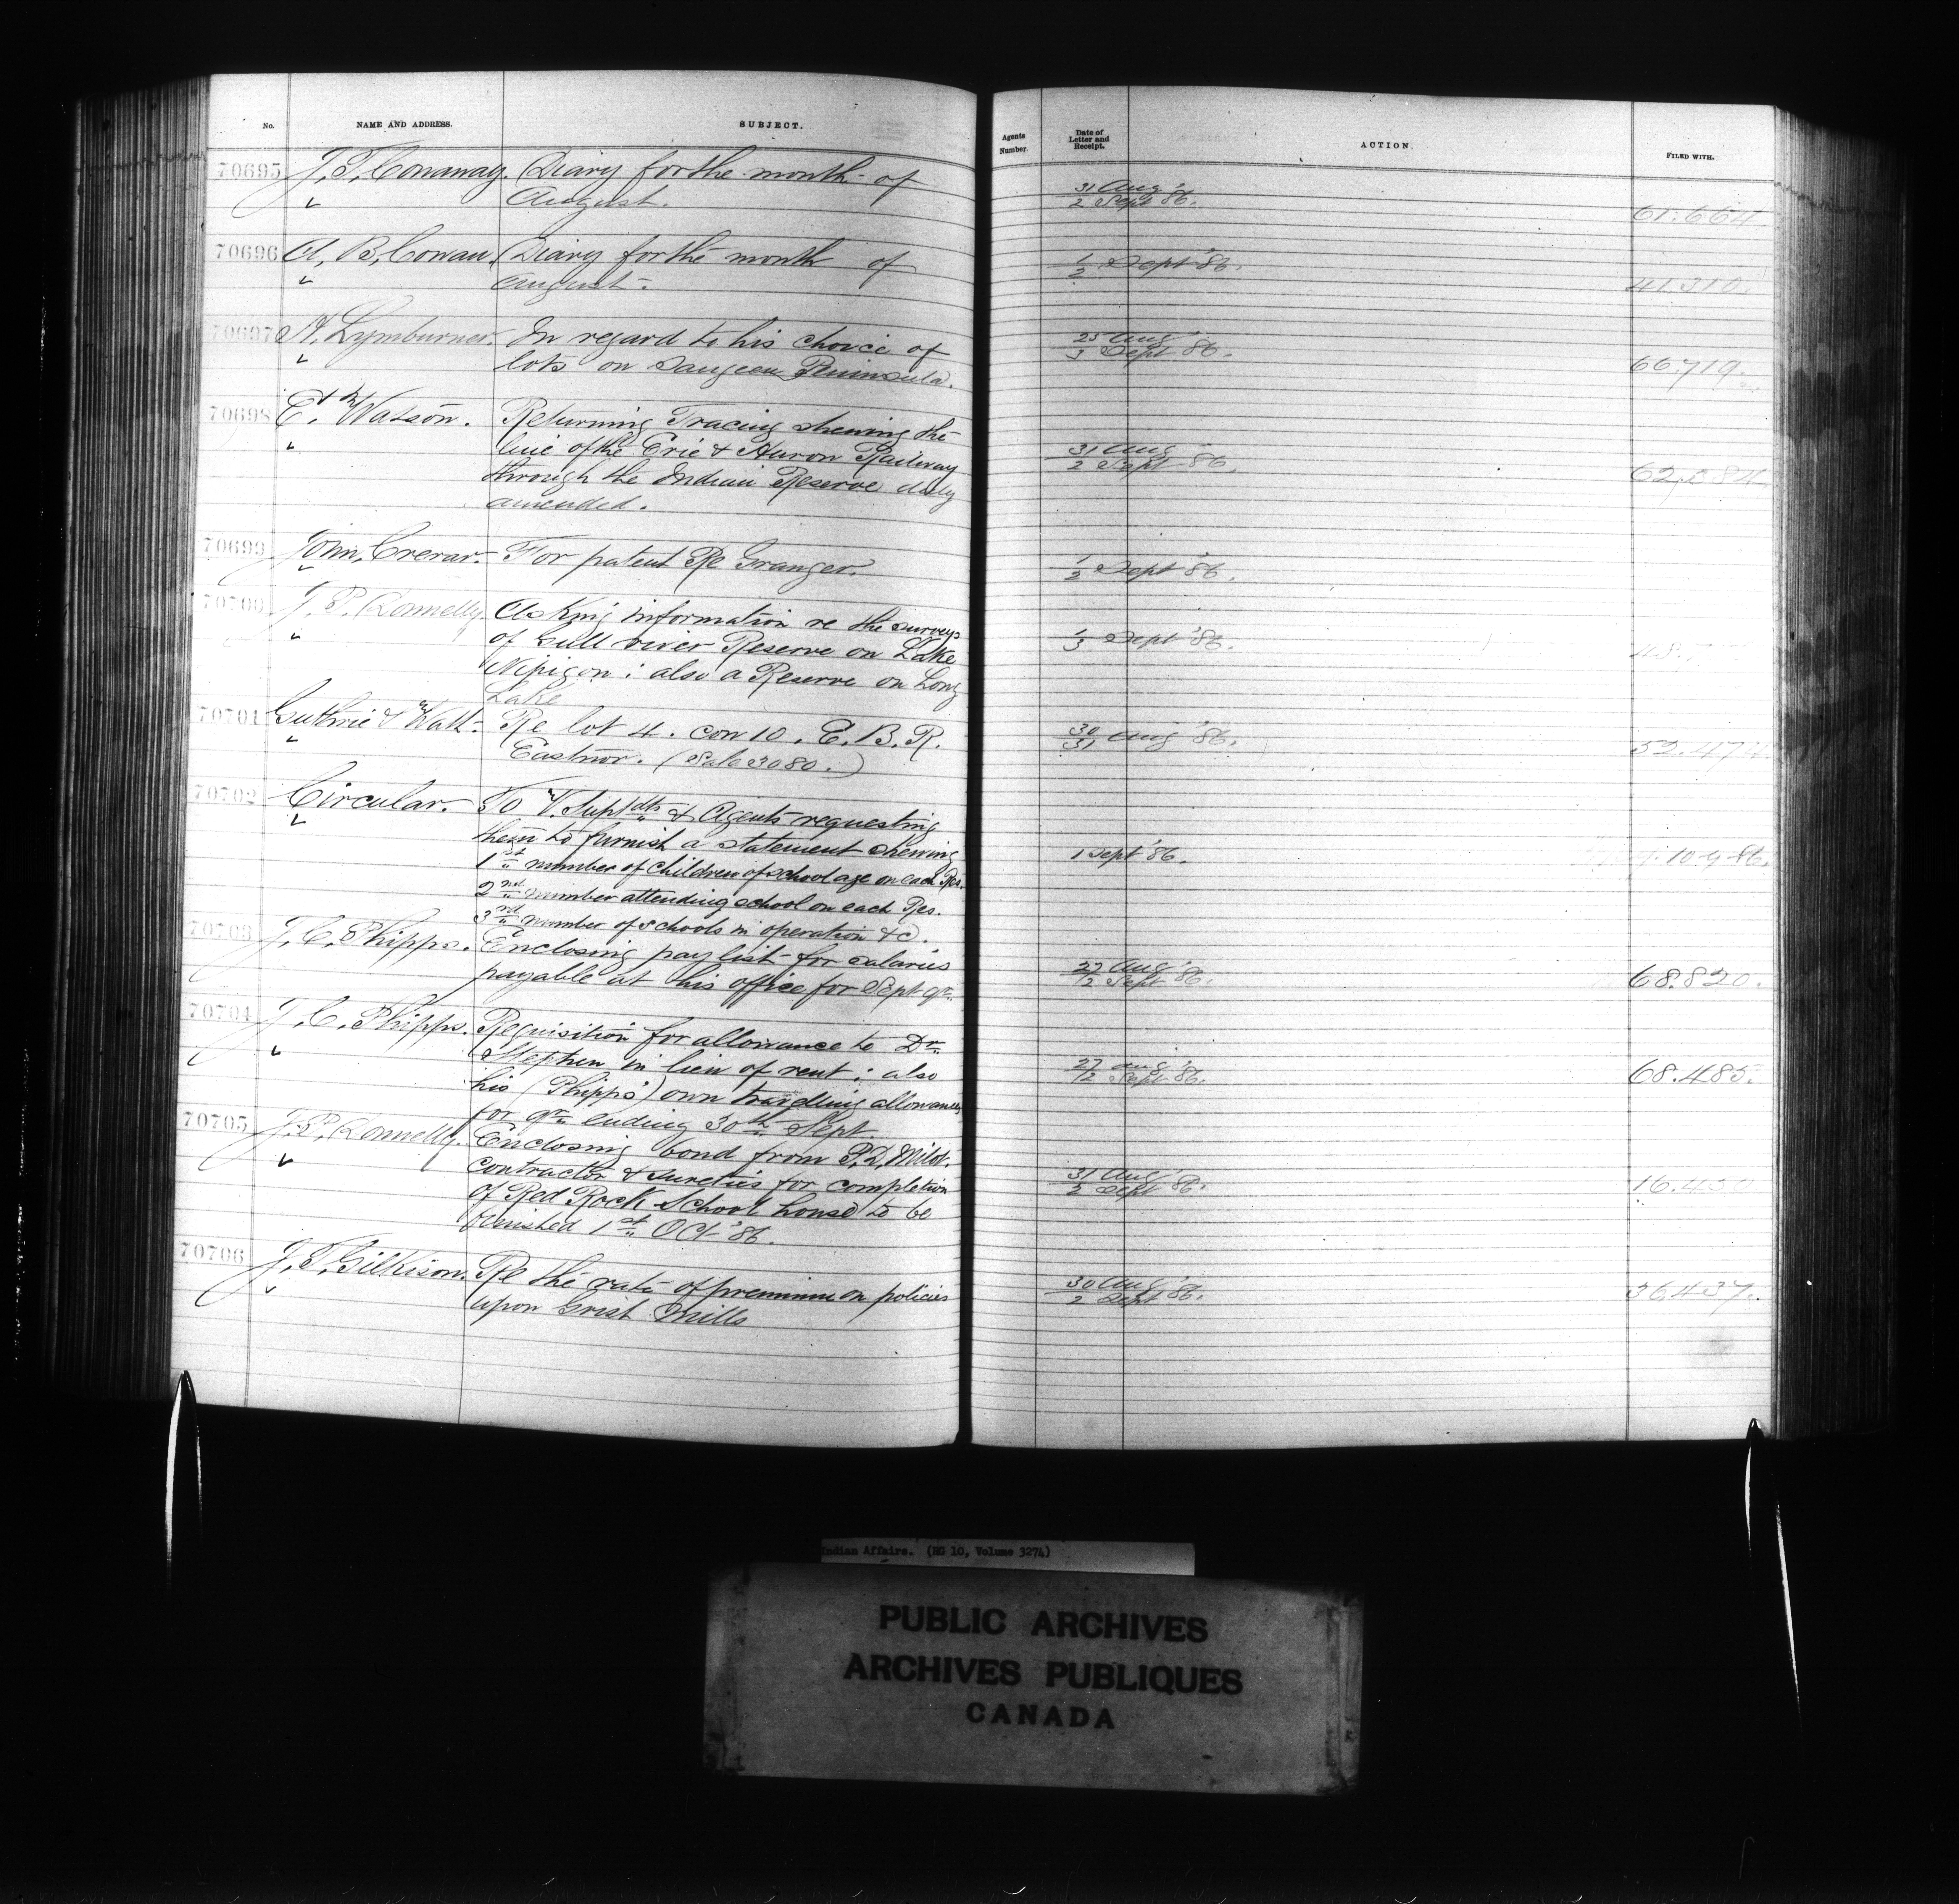 No. NAME AND ADDRESS. SUBJECT.
70695 J. T. Conaway. Diary for the month of
August.
70696 A. B. Cowan. Diary for the month of
August.
70697 A. Lymburner. In regard to his choice of
lots on Saugeen Peninsula.
70698 E. Watson. Returning Tracing shewing the
line of the Erie & Huron Railway
through the Indian Reserve duly
amended.
70699 John Crerar. For patent Re Granger.
70700 J. P. Donnelly. Asking information re the surveys
of Gull river Reserve on Lake
Nipigon; also a Reserve on Long
Lake
70701 Guthrie & Watt. Re lot 4. con 10. E. B. R.
Eastnor. (Sale 3080.)
70702 Circular. To V. Suptdts & Agents requesting
them to furnish a statement shewing
1st number of children of school age on each Res.
2nd number attending school on each Res.
3rd number of schools in operation &c.
70703 J. C. Phipps. Enclosing pay list for salaries
payable at his office for Sept qr.
70704 J. C. Phipps. Requisition for allowance to Dr.
Stephen in lieu of rent; also
his (Phipps') own travelling allowances
for qr. ending 30th Sept.
70705 J. P. Donnelly. Enclosing bond from P. D.
contractor & sureties for completion
of Red Rock School house to be
finished 1st Oct '86.
70706 J. T. Gilkison. Re the rate of premium on policies
upon Grist Mills
Agents Number. Date of Letter and Receipt. ACTION. FILED WITH.
31 Aug
2 Sept '86. 61.664
1/2 Sept '86. 41.310.
25 Aug
3 Sept '86. 66.719.
31 Aug
2 Sept '86.
1/2 Sept '86.
1/3 Sept '86.
30/31 Aug '86.
1 Sept '86. 10-9-86.
27 Aug
1/2 Sept '86. 68.820.
27 Aug
1/2 Sept '86. 68.485.
31 Aug
2 Sept '86.
30 Aug
2 Sept '86. 36.437.
Indian Affairs. (RG 10, Volume 3274)
PUBLIC ARCHIVES
ARCHIVES PUBLIQUES
CANADA